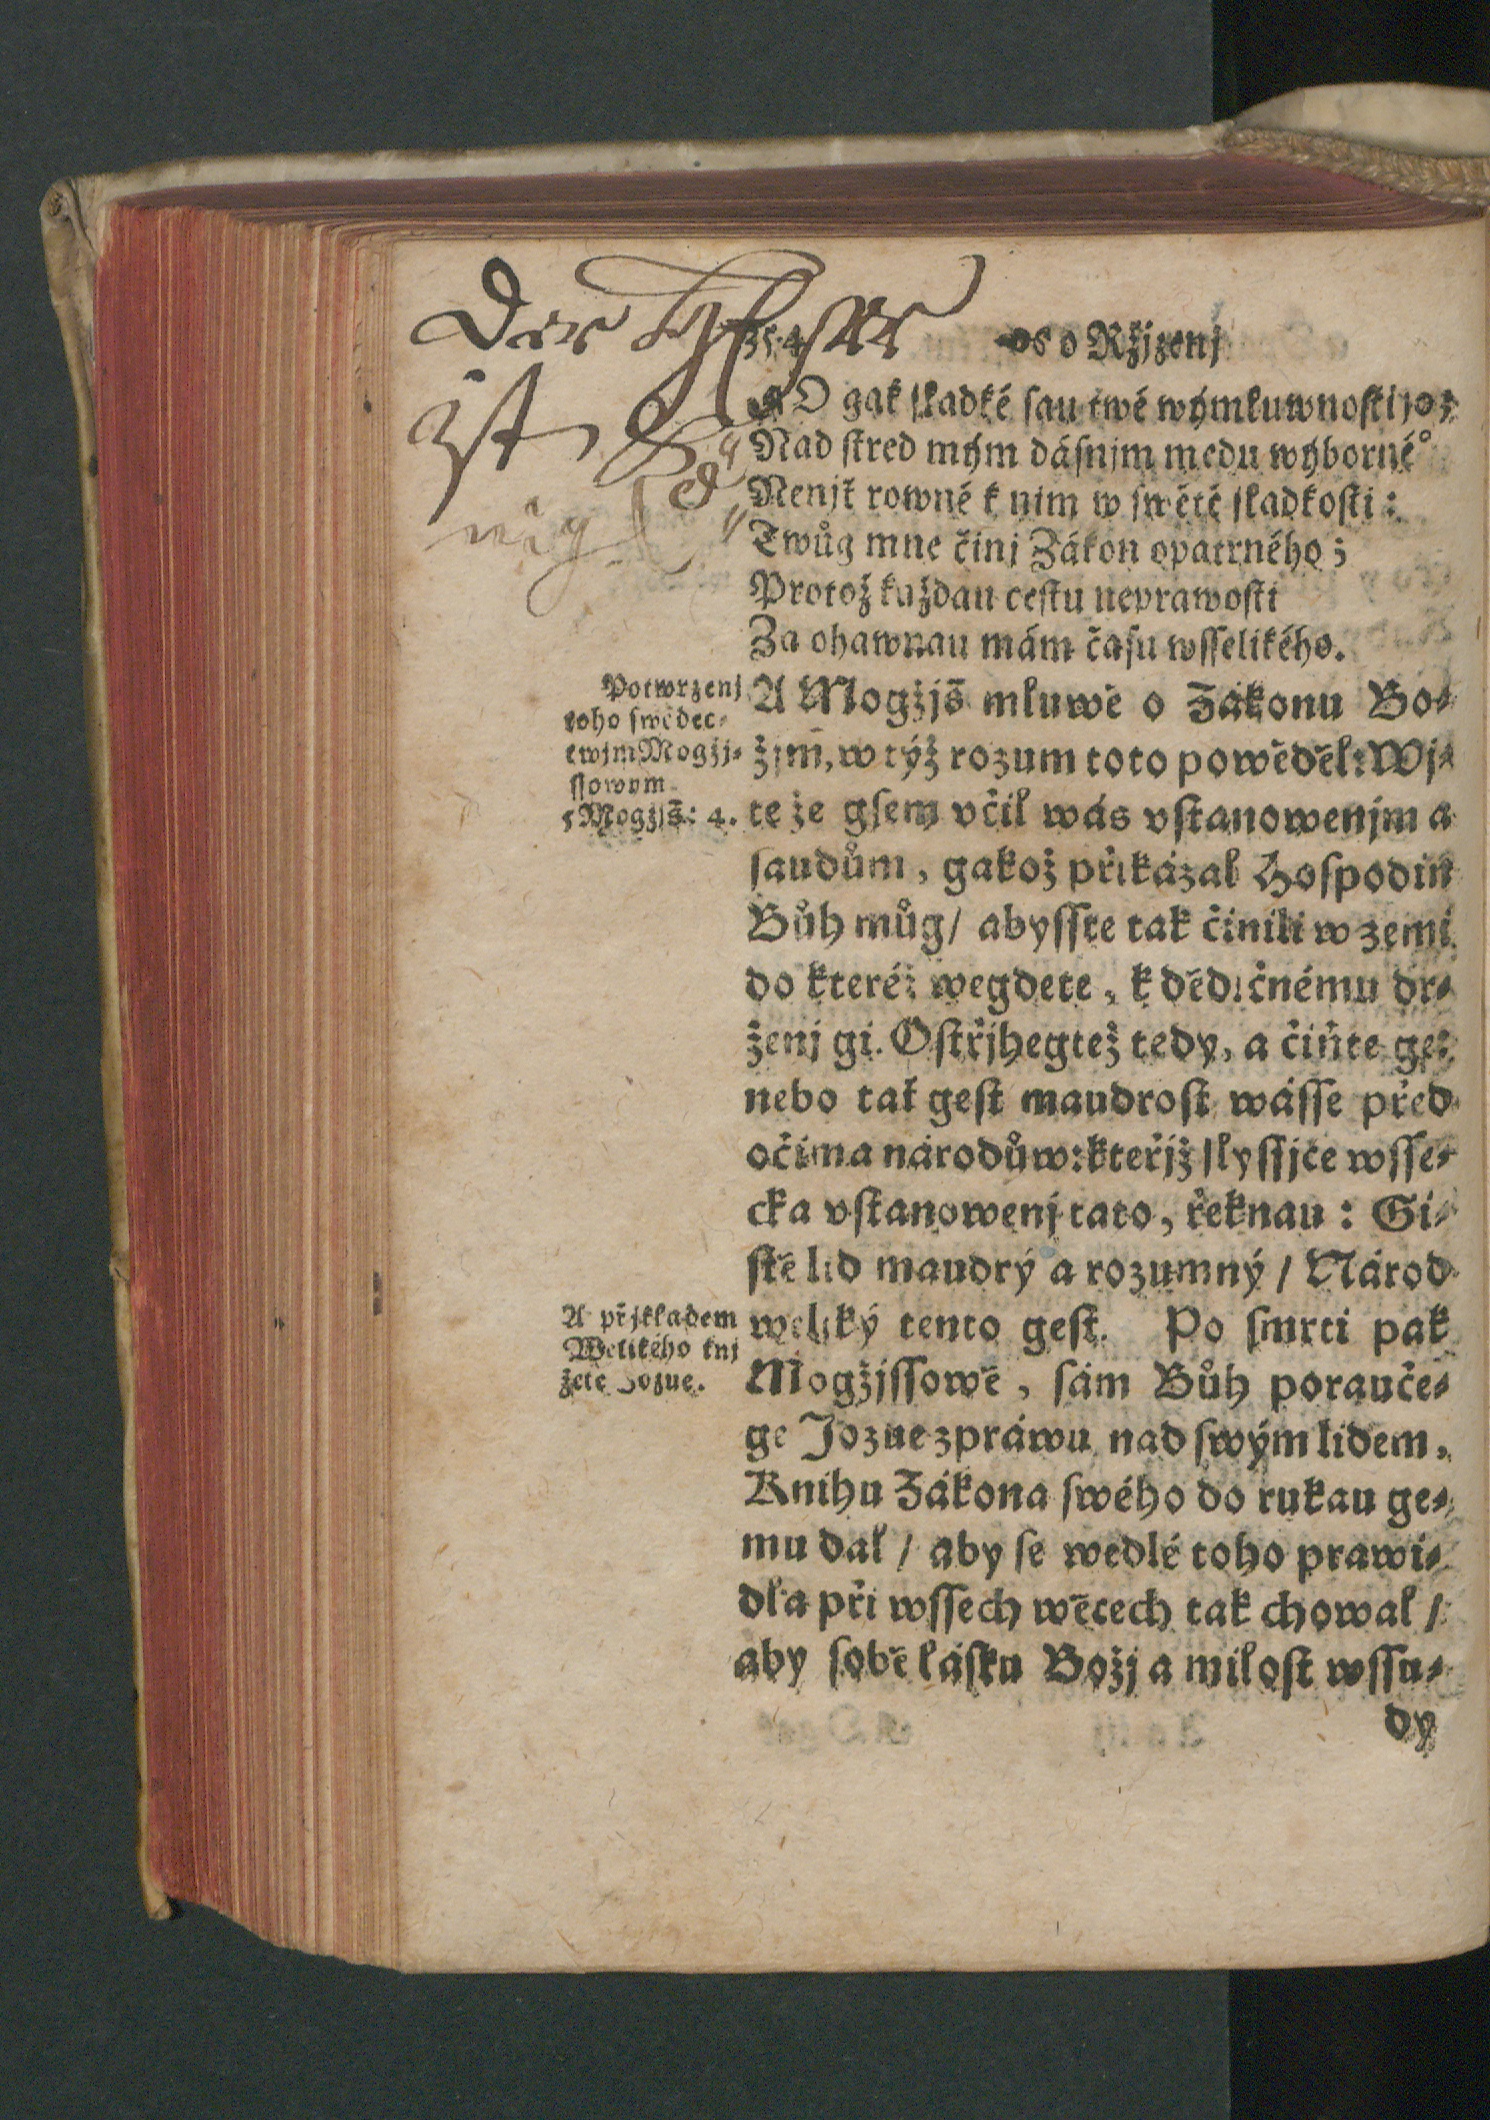 Der
ist
354 os o Ržjzenj
O gak sladké sau twé wýmluwnosti
Nad stred mým dásnjm medu wýborné°
Nenjť rowné k nim w swětě sladkosti:
Twůg mne činj Zákon opatrného;
Protož každau cestu neprawosti
Za ohawnau mám času wsselikého.
Potwrzenj
toho swědec⸗
twjm Mogžj⸗
ssowým.
5 Mogžjš̃: 4.
A Mogžjš̃ mluwě o Zákonu Bo⸗
žjm̃, w týž rozum toto powěděl: Wj⸗
te že gsem včil wás vstanowenjm a
saudům, gakož přikázal Hospodin
Bůh můg/ abysste tak činili w zemi
do kteréž wegdete, k dědičnému dr⸗
ženj gi. Ostřjhegtež tedy, a čiňte ge:
nebo tať gest maudrost wásse před
očima národůw: kteřjž slyssjce wsse⸗
cka vstanowenj tato, řeknau: Gi⸗
stě lid maudrý a rozumný / Národ
weliký tento gest. Po smrti pak
Mogžjssowě, sám Bůh porauče⸗
ge Jozue zpráwu nad swým lidem,
Knihu Zákona swého do rukau ge⸗
mu dal / aby se wedlé toho prawi⸗
dla při wssech wěcech tak chowal /
aby sobě lásku Božj a milost wssu⸗
dy
A přjkladem
Welikého knj
žete Jozue.